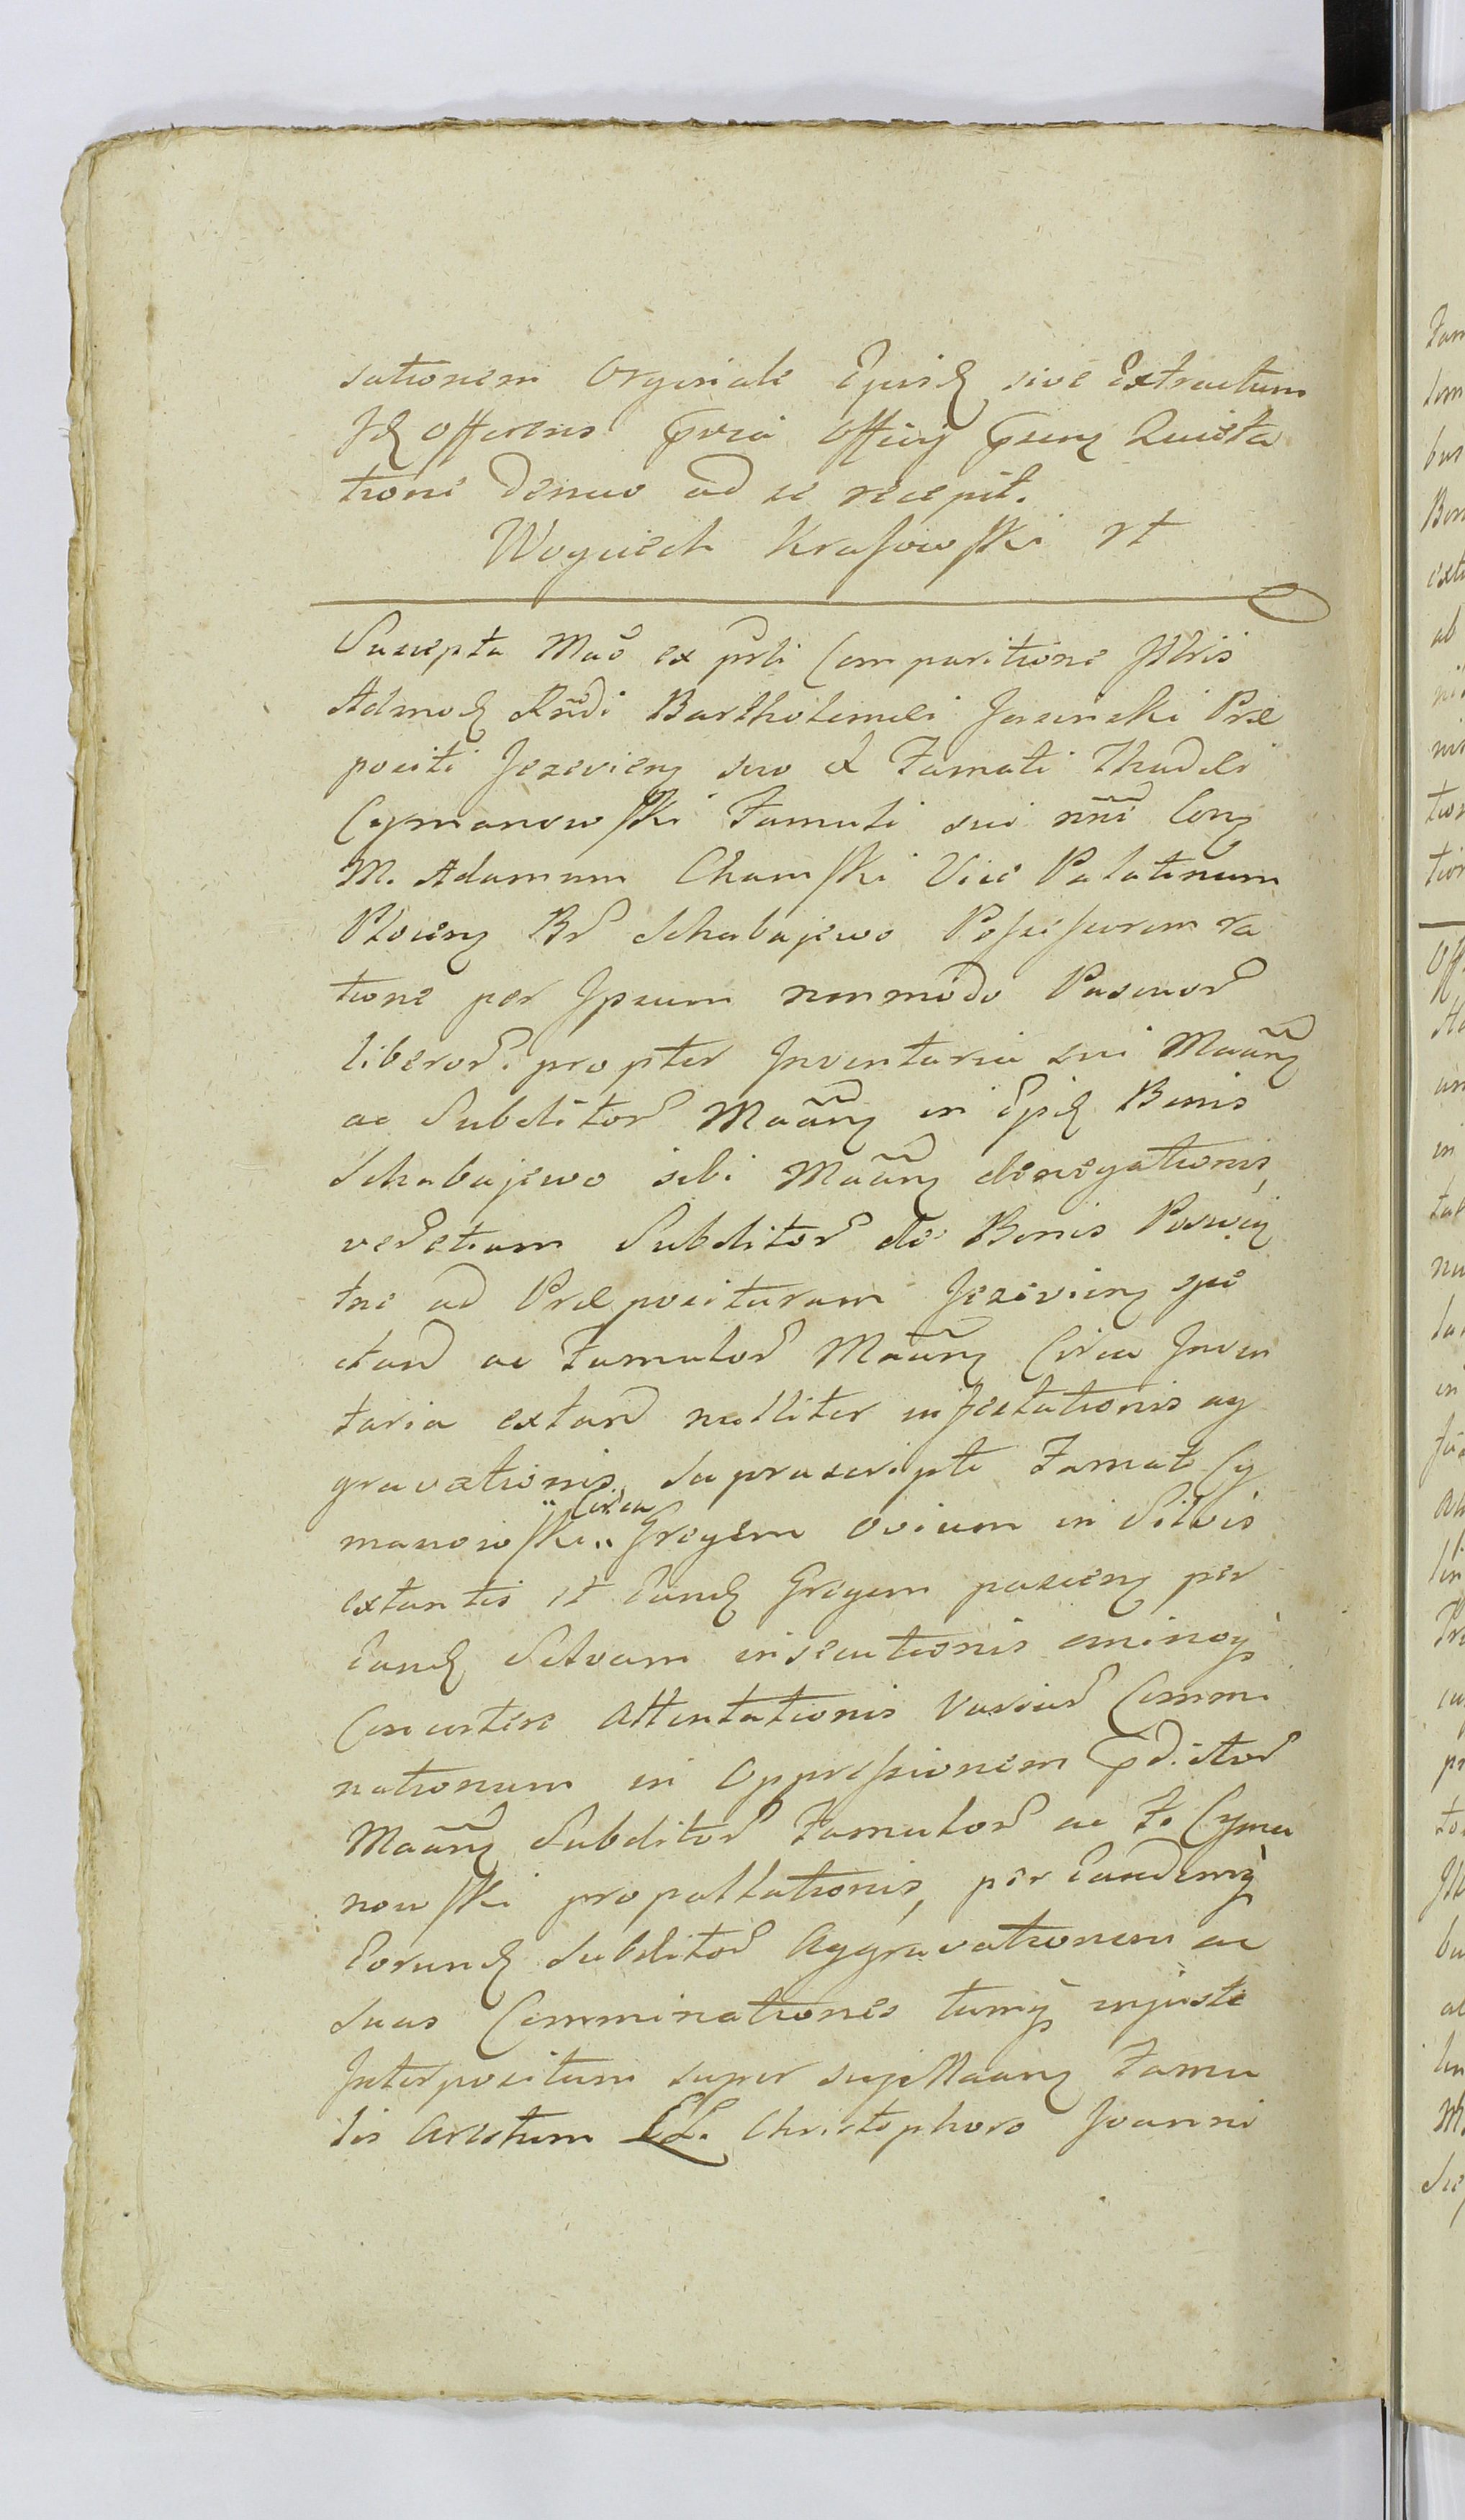 sationem Orginale Ejusd sive Extractum
Id Offerens Pnia Officij Psens Quieta
tione denuo ad se recepit.
Woyciech Krasowski rt
Suscepta Mao ex prli Comparitione Illris
Admod Rndi Bartholemei Jasinski Præ
positi Jezeviens suo & Famati Thadei
Cymanowski Famuli sui nni Cons
M. Adamum Chamski Vice Palatinum
Plociens Br Schabajewo Possessorem ra
tione per Ipsum nonmodo Pascuor
liberor. propter Inventaria sui Maans
ac Subditor Maans in Ejsd Bonis
Schabajewo sibi Maans denegationis,
veretiam Subditor de Bonis
tne ad Præposituram Jezeviens spe
ctan ac Famulor Maans Circa Inven
taria extan nulliter infestationis ag
gravationis Suprascripti Famat Cy
manowski „Circa„ Gregem Ovium in Silvis
extantis et Eund Gregem pascens per
Eand Silvam insecutionis eminoq
Concutere Attentationis Variar Commi
nationum in Oppressionem Pdictor
Maans Subditor Famulor ac F. Cyma
nowski propallationis, per Eandemq
Eorund Subditor Aggravationem ac
suas Comminationes tumq injuste
Interpositum super suje Maans Famu
lis Arestum LL. Christophoro Joanni